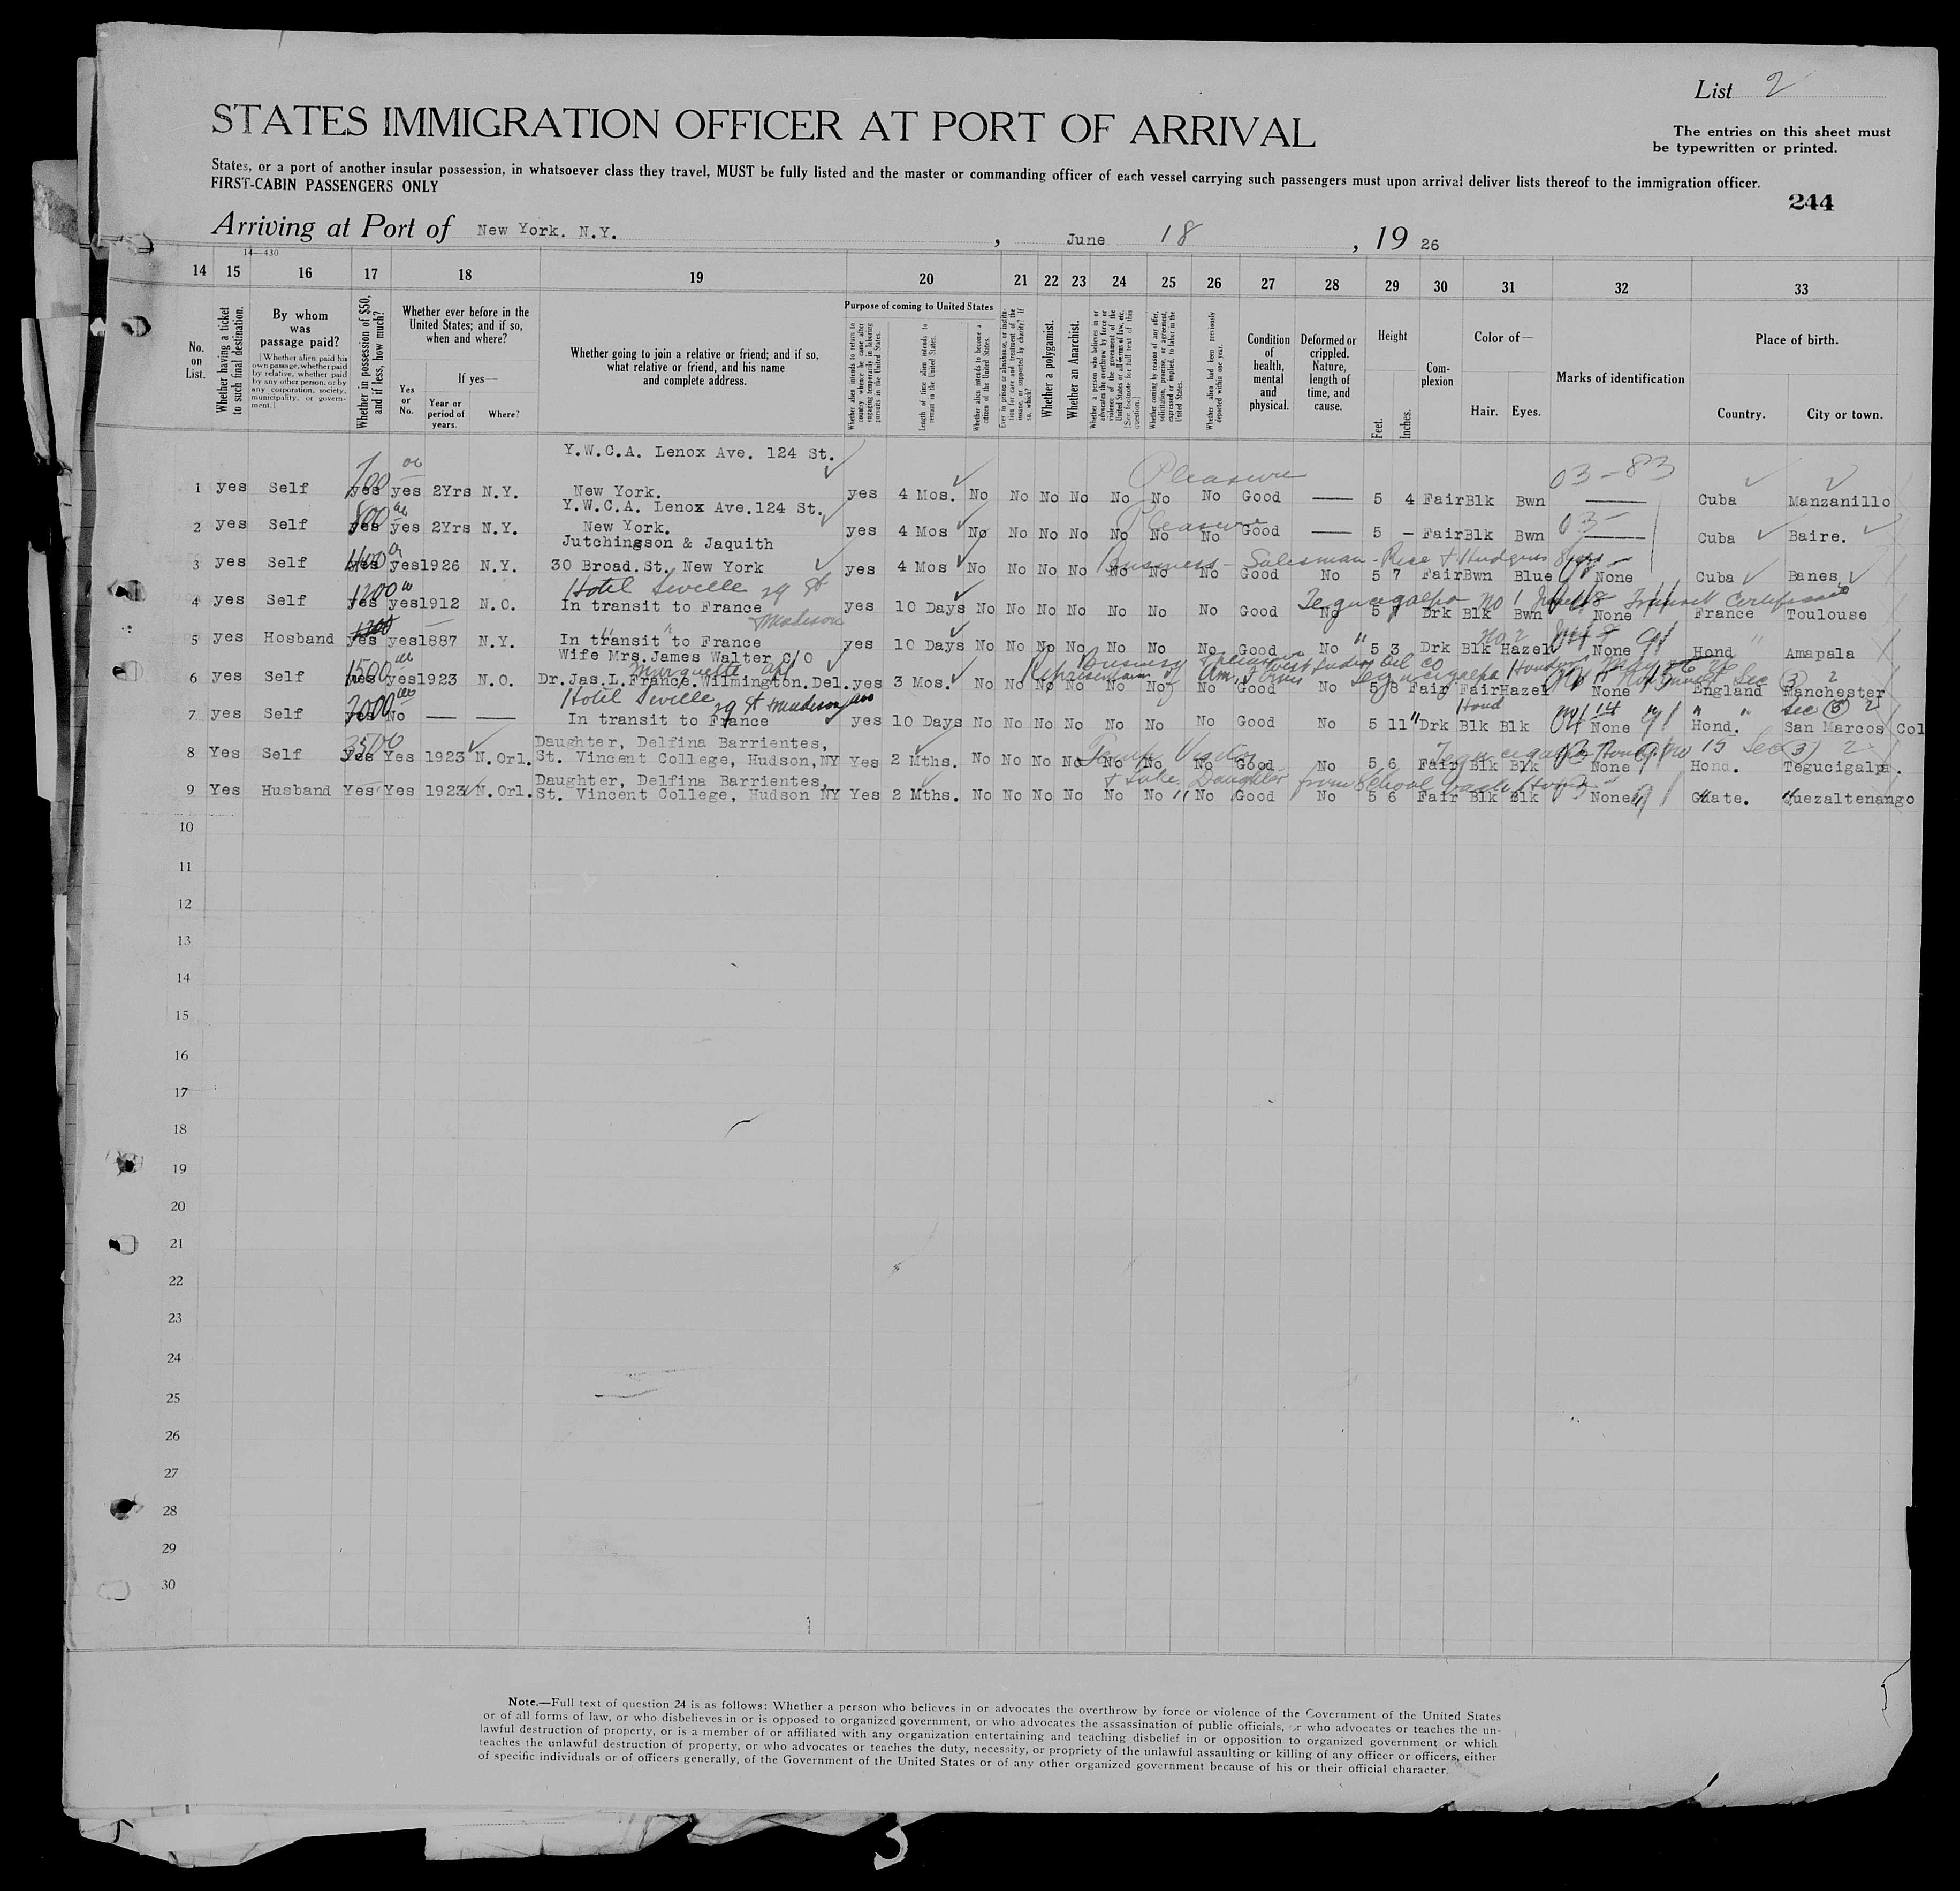 List 2
STATES IMMIGRATION OFFICER AT PORT OF ARRIVAL
The entries on this sheet must
be typewritten or printed.
States, or a port of another insular possession, in whatsoever class they travel, MUST be fully listed and the master or commanding officer of each vessel carrying such passengers must upon arrival deliver lists thereof to the immigration officer.
FIRST-CABIN PASSENGERS ONLY
244
Arriving at Port of New York. N.Y. , June 18 , 19 26
14—430
14 15 16 17 18 19 20 21 22 23 24 25 26 27 28 29 30 31 32 33
No. on List.
Whether having a ticket to such final destination.
By whom was passage paid?
[Whether alien paid his own passage, whether paid by relative, whether paid by any other person, or by any corporation, society, municipality, or government.]
Whether in possession of $50, and if less, how much?
Whether ever before in the United States; and if so, when and where?
Yes or No.
If yes—
Year or period of years.
Where?
Whether going to join a relative or friend; and if so, what relative or friend, and his name and complete address.
Purpose of coming to United States
Whether alien intends to return to country whence he came after engaging temporarily in laboring pursuits in the United States.
Length of time alien intends to remain in the United States.
Whether alien intends to become a citizen of the United States.
Ever in prison or almshouse, or institution for care and treatment of the insane, or supported by charity? If so, which?
Whether a polygamist.
Whether an Anarchist.
Whether a person who believes in or advocates the overthrow by force or violence of the government of the United States or all forms of law, etc. [See footnote for full text of this question.]
Whether coming by reason of any offer, solicitation, promise, or agreement, expressed or implied, to labor in the United States.
Whether alien had been previously deported within one year.
Condition of health, mental and physical.
Deformed or crippled. Nature, length of time, and cause.
Height
Feet. Inches.
Complexion
Color of—
Hair. Eyes.
Marks of identification
Place of birth.
Country. City or town.
Y.W.C.A. Lenox Ave. 124 St.
700 00 Pleasure 03-83
1 yes Self yes yes 2Yrs N.Y. New York. yes 4 Mos. No No No No No No No Good —— 5 4 Fair Blk Bwn —— Cuba Manzanillo
Y.W.C.A. Lenox Ave.124 St.
800 00 Pleasure 03-
2 yes Self yes yes 2Yrs N.Y. New York. yes 4 Mos No No No No No No No Good —— 5 - Fair Blk Bwn —— Cuba Baire.
Jutchingson & Jaquith
Business - Salesman - Rice &
3 yes Self yes yes1926 N.Y. 30 Broad.St. New York yes 4 Mos No No No No No No No Good No 5 7 Fair Bwn Blue None Cuba Banes
1200 00 Hotel Seville 29 St Tegucigalpa No 1 Transit Certificate
4 yes Self yes yes1912 N.O. In transit to France yes 10 Days No No No No No No No Good No 5 7 Drk Blk Bwn None France Toulouse
Madison
1200 No 2
5 yes Hosband yes yes1887 N.Y. In transit to France yes 10 Days No No No No No No No Good No 5 3 Drk Blk Hazel None Hond Amapala
Wife Mrs.James Walter C/O
1500 00 Marquette Apt Business Representative of West India Oil Co Tegucigalpa Honduras May 26 26 Sec (3) 2
6 yes Self yes yes1923 N.O. Dr.Jas.L.France.Wilmington.Del. yes 3 Mos. No No No No No No No Good No 5 8 Fair Fair Hazel None England Manchester
2000 00 Hotel Seville 29 St Madison Ave Hond 14 Sec (3) 2
7 yes Self yes No —— —— In transit to France yes 10 Days No No No No No No No Good No 5 11 Drk Blk Blk None Hond. San Marcos Col
3500 Daughter, Delfina Barrientes, Temp Visitor Tegucigalpa Hond. No 15 Sec (3) 2
8 Yes Self Yes Yes 1923 N.Orl. St. Vincent College, Hudson,NY Yes 2 Mths. No No No No No No No Good No 5 6 Fair Blk Blk None Hond. Tegucigalpa.
Daughter, Delfina Barrientes, & take Daughter from School
9 Yes Husband Yes Yes 1923 N.Orl. St. Vincent College, Hudson NY Yes 2 Mths. No No No No No No No Good No 5 6 Fair Blk Blk None Guate. Quezaltenango
10
11
12
13
14
15
16
17
18
19
20
21
22
23
24
25
26
27
28
29
30
Note.—Full text of question 24 is as follows: Whether a person who believes in or advocates the overthrow by force or violence of the Government of the United States
or of all forms of law, or who disbelieves in or is opposed to organized government, or who advocates the assassination of public officials, or who advocates or teaches the un-
lawful destruction of property, or is a member of or affiliated with any organization entertaining and teaching disbelief in or opposition to organized government or which
teaches the unlawful destruction of property, or who advocates or teaches the duty, necessity, or propriety of the unlawful assaulting or killing of any officer or officers, either
of specific individuals or of officers generally, of the Government of the United States or of any other organized government because of his or their official character.
3